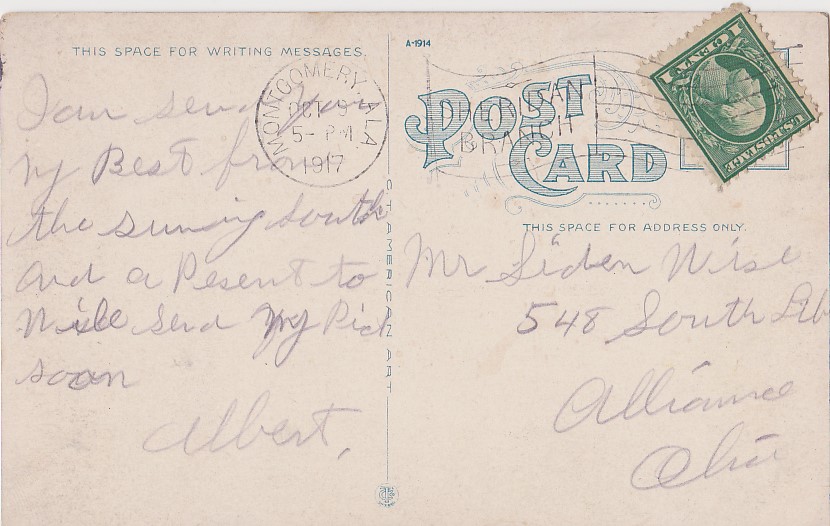 THIS SPACE FOR WRITING MESSAGES.
I am send you
my Best from
the suning South
and a Pesent to
will send my Pic
soon
Albert,
MONTGOMERY, ALA.
OCT 9
5- PM
1917
C.T. AMERICAN ART
A-1914
POST
CARD
BRANCH
1 CENT 1
U.S. POSTAGE
THIS SPACE FOR ADDRESS ONLY.
Mr Siden Wise
548 South Lib
Alliance
Ohio